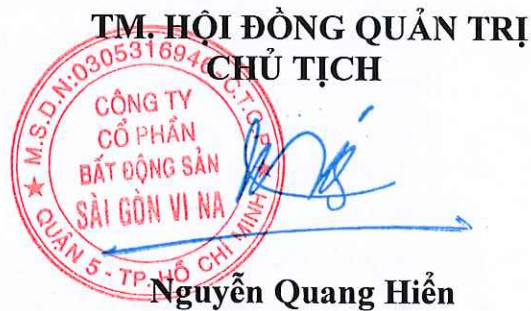 TM. HỘI ĐỒNG QUẢN TRỊ
CHỦ TỊCH
M.S.D.N:0305316946 C.T.C.P
CÔNG TY
CỔ PHẦN
BẤT ĐỘNG SẢN
SÀI GÒN VI NA
QUẬN 5 - TP. HỒ CHÍ MINH
Nguyễn Quang Hiển